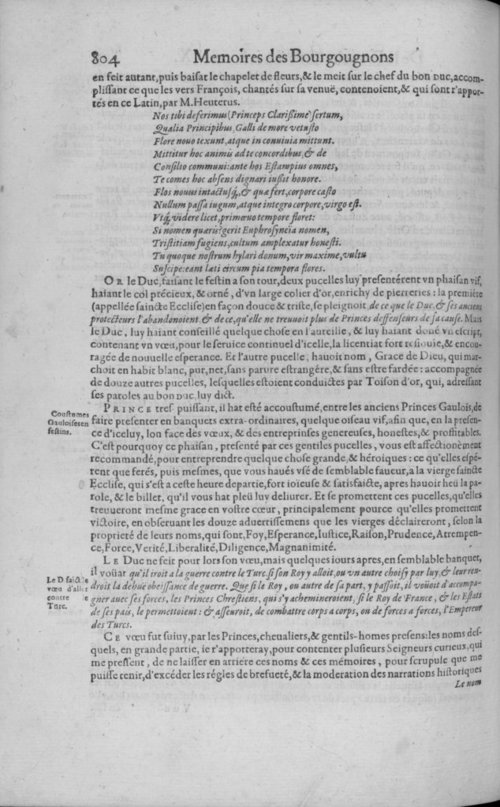 804 Memoires des Bourgougnons
en feit autant, puis baisat le chapelet de fleurs, & le meit sur le chef du bon DUC, accom-
plissant ce que les vers François, chantés sur sa venuë, contenoient, & qui sont r'appor-
tés en ce Latin, par M. Heuterus.
Nos tibi deferimus (Princeps Clarissime) sertum,
Qualia Principibus Galli de more vetusto
Flore nouo texunt, atque in conuiuia mittunt.
Mittitur hoc animis ad te concordibus, & de
Consilio communi: ante hos Estampius omnes,
Te comes hoc absens dignari iussit honore.
Flos nouus intactusq́, & qua fert, corpore casto
Nullum passa iugum, atque integro corpore, virgo est.
Vtq́, videre licet, primæuo tempore floret:
Si nomen quæris? gerit Euphrosyneia nomen,
Tristitiam fugiens, cultum amplexatur honesti.
Tu quoque nostrum hylari donum, vir maxime, vultu
Suscipe: eant læti circum pia tempora flores.
OR le Duc, faisant le festin a son tour, deux pucelles luy presentérent vn phaisan vif,
haiant le col précieux, & orné, d'vn large colier d'or, enrichy de pierreries: la premiére
(appellée saincte Ecclise) en façon douce & triste, se pleignoit, de ce que le Duc, & ses anciens
protecteurs l'abandonoient & de ce, qu'elle ne treuuoit plus de Princes deffenseurs de sa cause. Mais
le Duc, luy haiant conseillé quelque chose en l'aureille, & luy haiant doné vn escript,
contenant vn vœu, pour le seruice continuel d'icelle, la licentiat fort resiouie, & encou-
ragée de nouuelle esperance. Et l'autre pucelle, hauoit nom, Grace de Dieu, qui mar-
choit en habit blanc, pur, net, sans parure estrangére, & sans estre fardée: accompagnée
de douze autres pucelles, lesquelles estoient conduictes par Toison d'or, qui, adressant
ses paroles au bon DUC, luy dict.
Coustumes
Gauloises en
festins.
PRINCE tres puissant, il hat esté accoustumé, entre les anciens Princes Gaulois, de
faire presenter en banquets extra-ordinaires, quelque oiseau vif, afin que, en la presen-
ce d'iceluy, lon face des vœux, & des entreprinses genereuses, honestes, & proffitables.
C'est pourquoy ce phaisan, presenté par ces gentiles pucelles, vous est affectionément
recommandé, pour entreprendre quelque chose grande, & héroique: ce qu'elles espé-
rent que ferés, puis mesmes, que vous haués vsé de semblable faueur, a la vierge saincte
Ecclise, qui s'est a ceste heure departie, fort ioieuse & satisfaicte, apres hauoir heu la pa-
role, & le billet, qu'il vous hat pleü luy deliurer. Et se promettent ces pucelles, qu'elles
treuueront mesme grace en vostre cœur, principalement pource qu'elles promettent
victoire, en obseruant les douze aduertissemens que les vierges déclaireront, selon la
proprieté de leurs noms, qui sont, Foy, Esperance, Iustice, Raison, Prudence, Attrempen-
ce, Force, Verité, Liberalité, Diligence, Magnanimité.
Le D. faict le
vœu d'aller
contre le
Turc.
LE Duc ne feit pour lors son vœu, mais quelques iours apres, en semblable banquet,
il voüat qu'il iroit a la guerre contre le Turc, si son Roy y alloit, ou vn autre choisy par luy, & leur ren-
droit la dehuë obeissance de guerre. Que si le Roy, ou autre de sa part, y passoit, il voüeit d'accompa-
gner auec ses forces, les Princes Chrestiens, qui s'y achemineroient, si le Roy de France, & les Estats
de ses païs, le permettoient: & asseuroit, de combattre corps a corps, ou de forces a forces, l'Empereur
des Turcs.
CE vœu fut suiuy, par les Princes, cheualiers, & gentils-homes presens: les noms des-
quels, en grande partie, ie r'apporteray, pour contenter plusieurs Seigneurs curieux, qui
me pressent, de ne laisser en arriére ces noms & ces mémoires, pour scrupule que me
puisse tenir, d'excéder les régles de brefueté, & la moderation des narrations historiques
Le nom